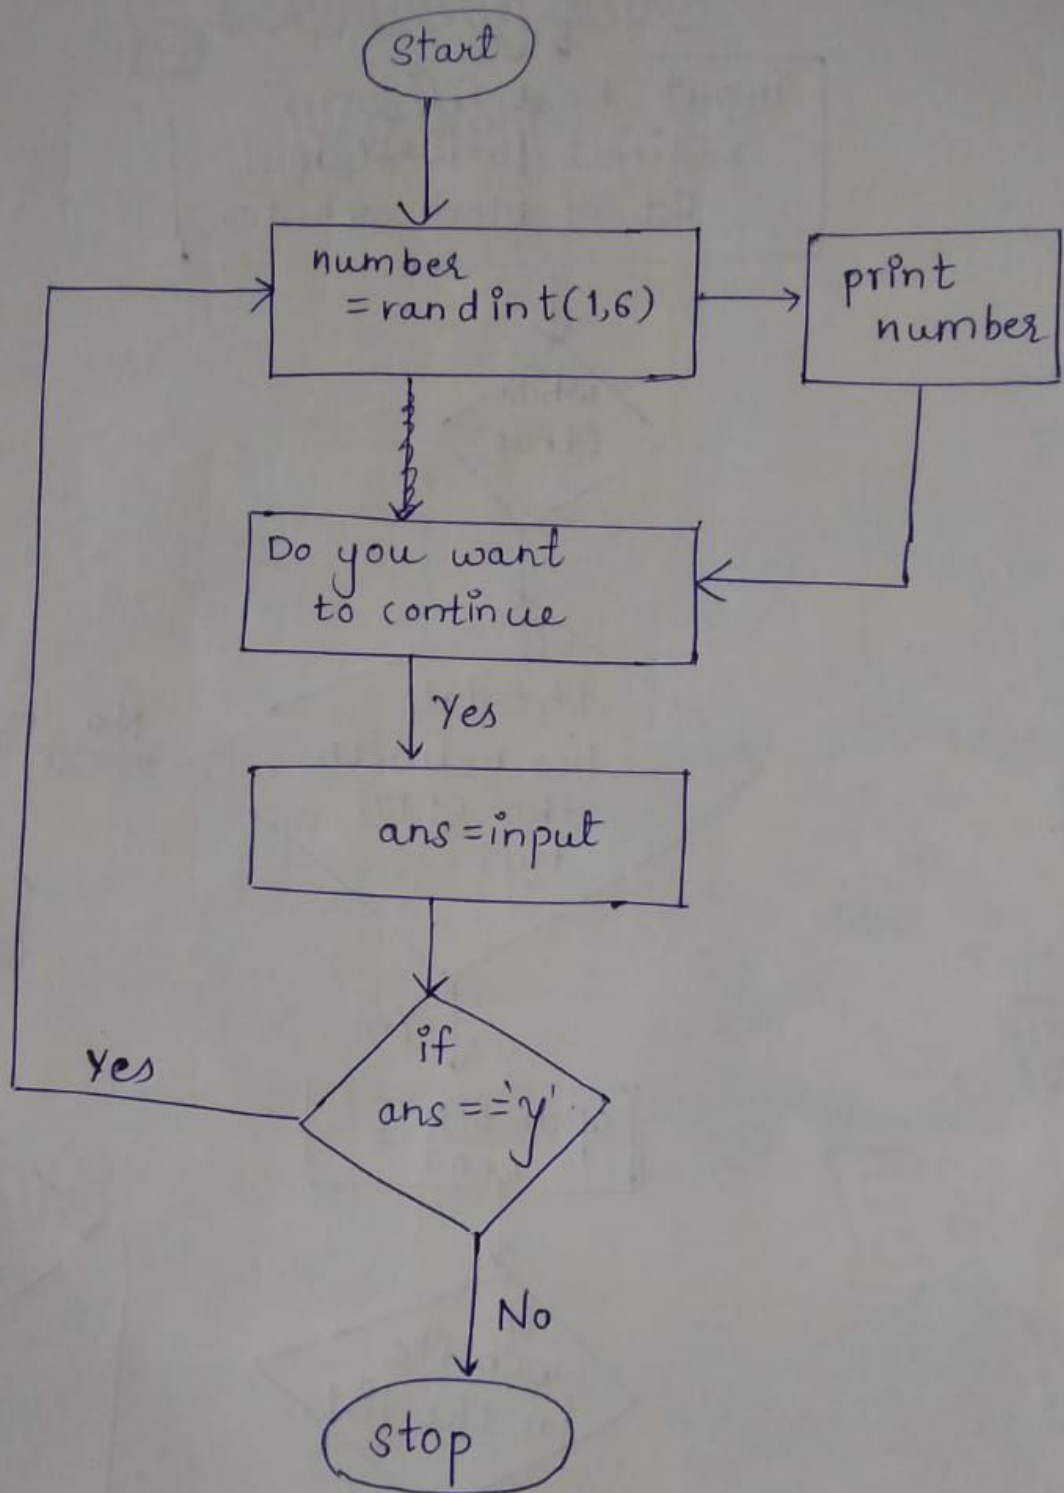 Start
number
= randint(1,6)
print
number
Do you want
to continue
Yes
ans = input
if
ans == 'y'
Yes
No
stop